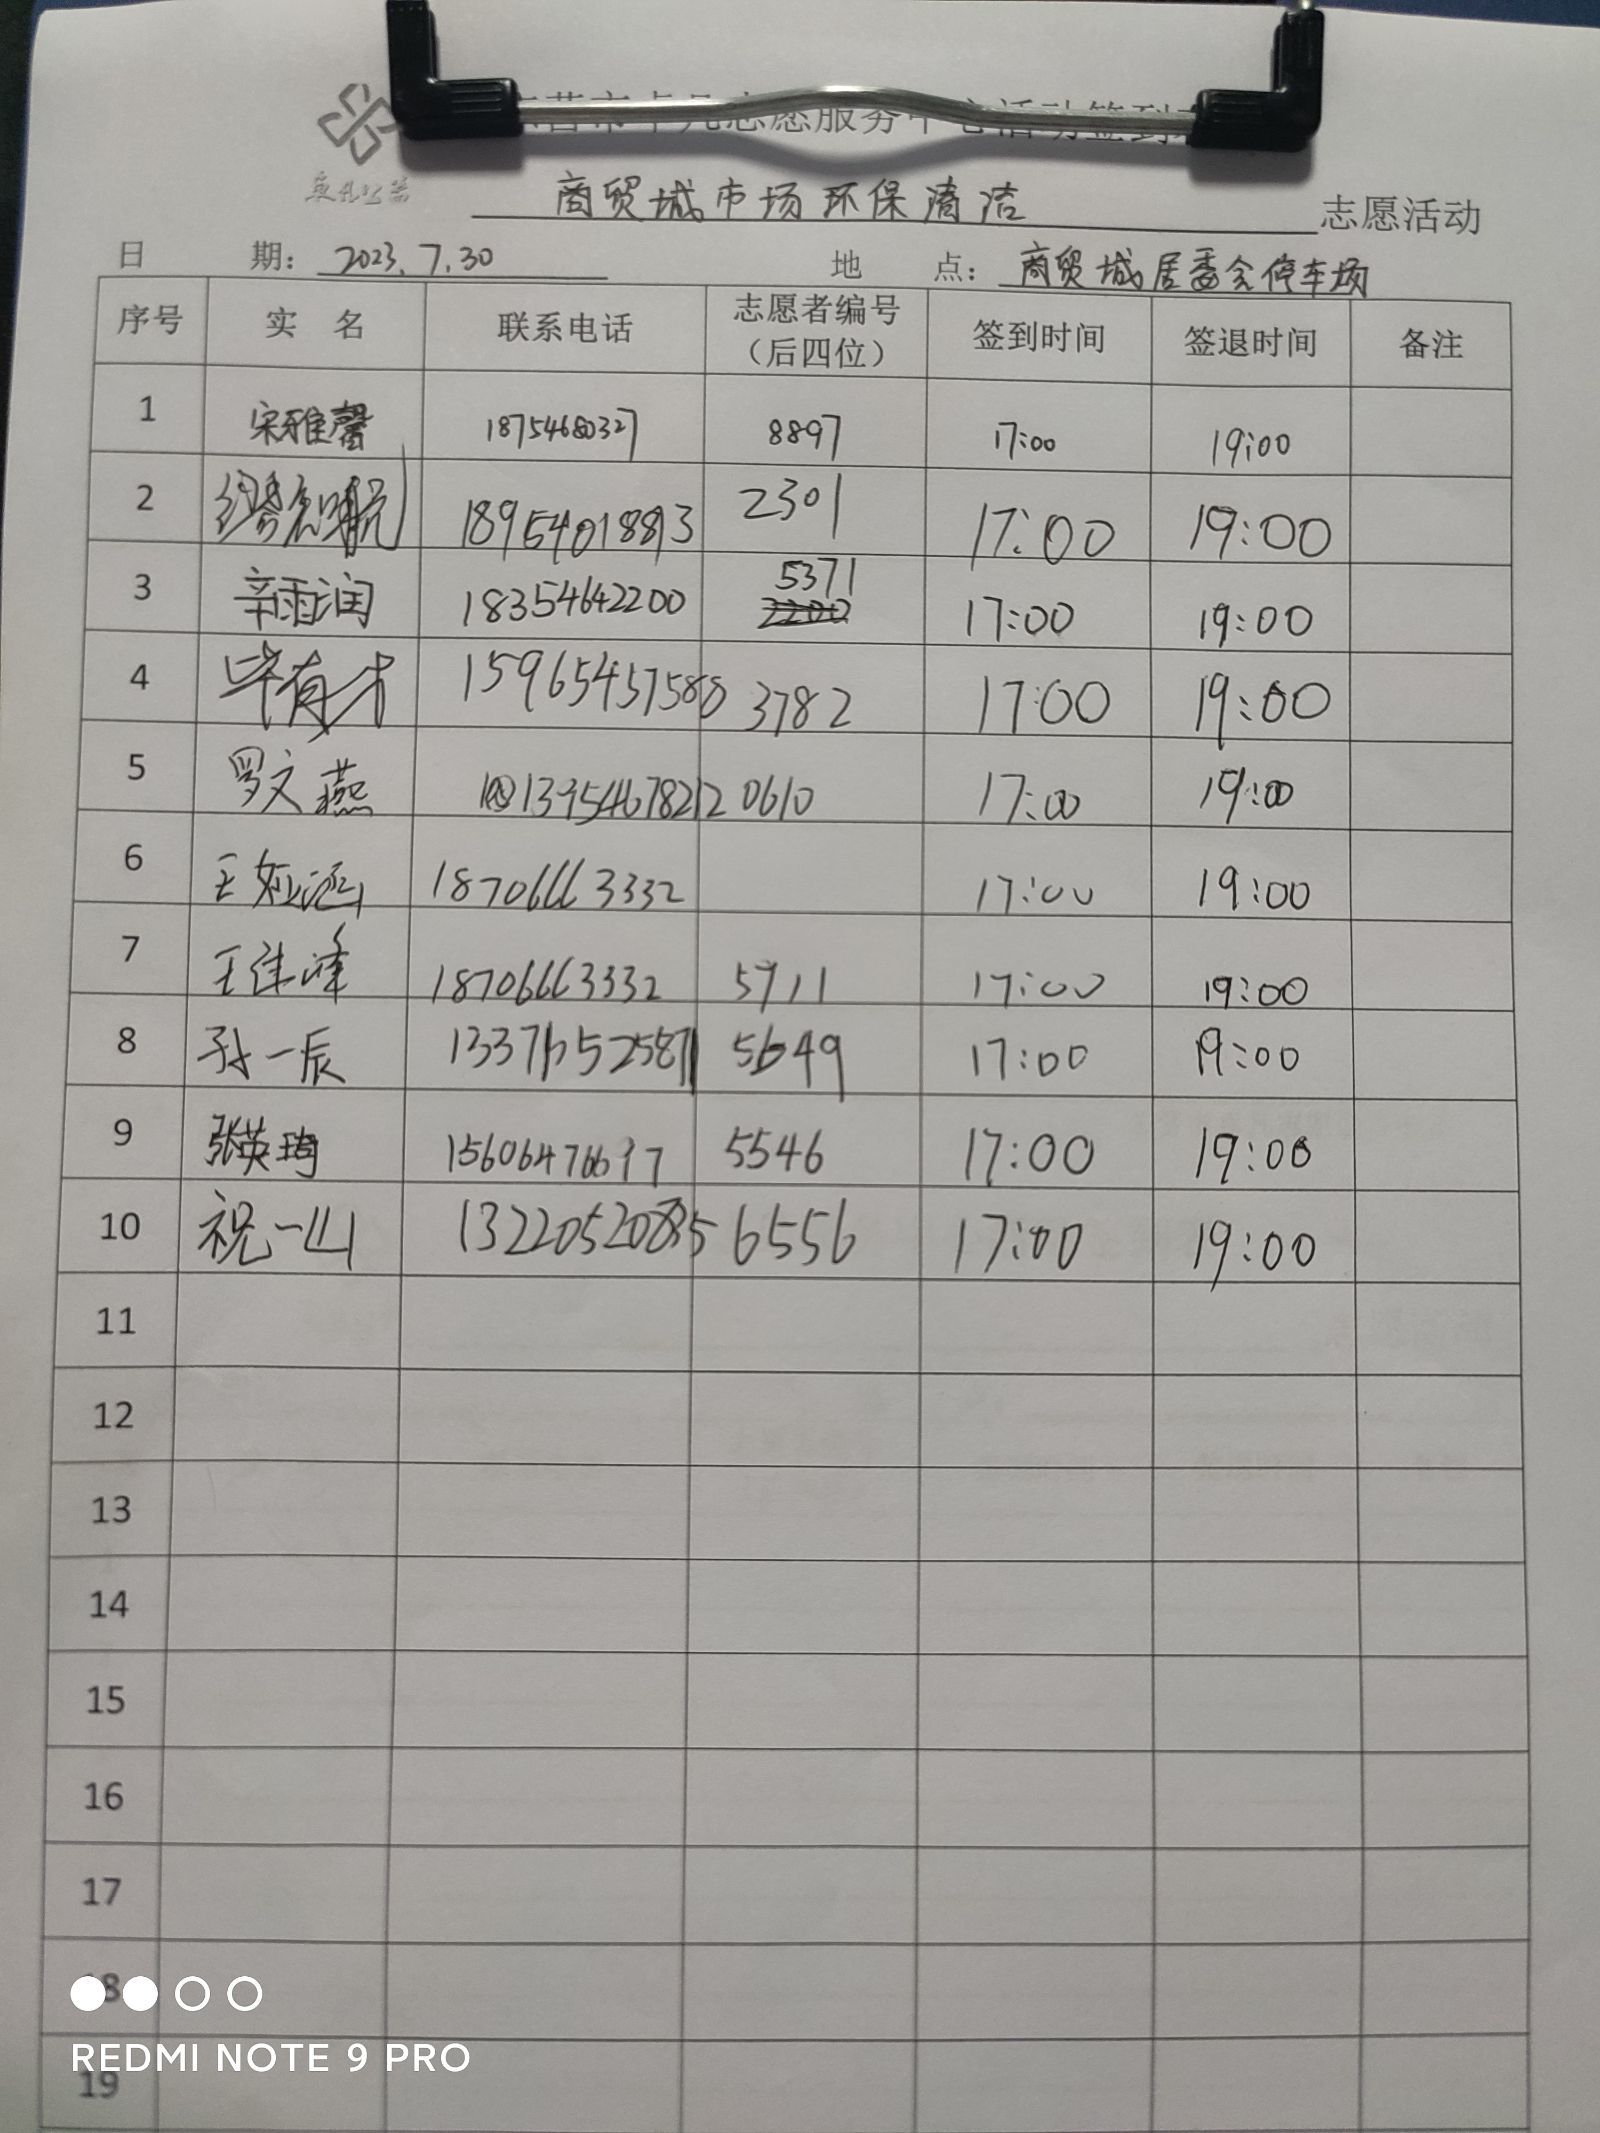 志愿服务中心活动签到
商贸城市场环保清洁 志愿活动
日 期: 2023.7.30 地 点: 商贸城居委会停车场
序号 实 名 联系电话 志愿者编号（后四位） 签到时间 签退时间 备注
1 宋雅馨 18754680327 8897 17:00 19:00
2 18954018893 2301 17:00 19:00
3 辛雨润 18354642200 5371 17:00 19:00
4 毕有才 3782 17:00 19:00
5 罗文燕 13954678212 0610 17:00 19:00
6 王娅涵 18706663332 17:00 19:00
7 王佳峰 18706663332 5711 17:00 19:00
8 孙一辰 5649 17:00 19:00
9 张英琦 5546 17:00 19:00
10 祝一山 6556 17:00 19:00
11
12
13
14
15
16
17
18
REDMI NOTE 9 PRO
19